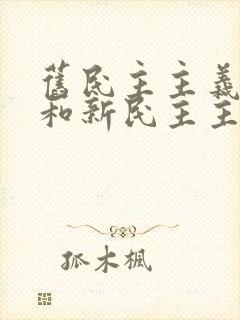 舊民主主義
和新民主主
孤木楓